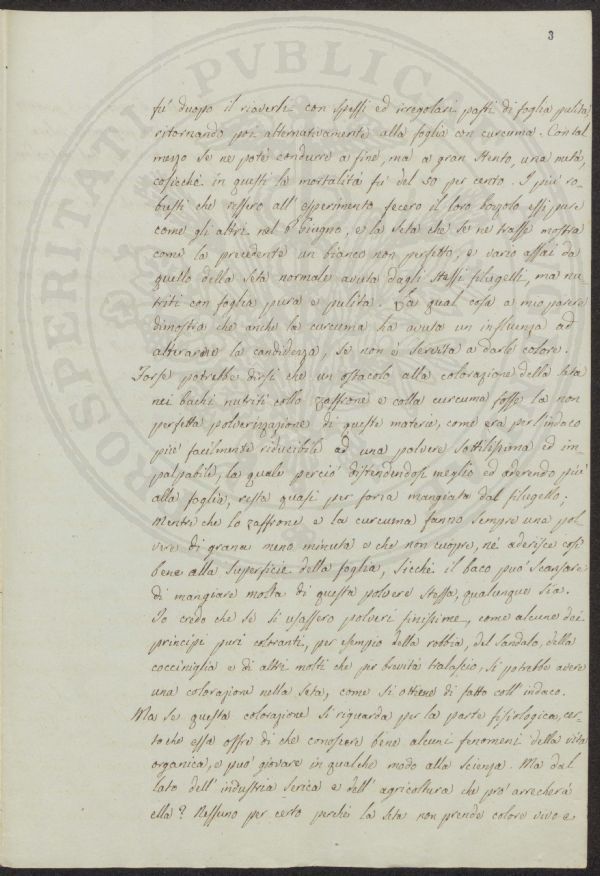 3
PROSPERITATI PUBLICAE
fu' duopo il riaverli con spessi ed irregolari pasti di foglia pulita,
ritornando poi alternativamente alla foglia con curcuma. Con tal
mezzo se ne potè condurre a fine, ma a gran stento, una metà,
cosicchè in questi la mortalità fu del 50 per cento. I più ro-
busti che ressero all'esperimento fecero il loro bozzolo essi pure
come gli altri nel Giugno, e la seta che se ne trasse mostra
come la precedente un bianco non perfetto, e vario assai da
quello della seta normale avuta dagli stessi filugelli, ma nu-
triti con foglia pura e pulita. La qual cosa a mio parere
dimostra che anche la curcuma ha avuta un influenza ad
alterarne la candidezza, se non è servita a darle colore.
Forse potrebbe dirsi che un ostacolo alla colorazione della seta
nei bachi nutriti collo zaffrone e colla curcuma fosse la non
perfetta polverizzazione di queste materie, come era per l'indaco
più facilmente riducibile ad una polvere sottilissima ed im-
palpabile, la quale perciò distendendosi meglio ed aderendo più
alla foglia, resta quasi per forza mangiata dal filugello;
mentre che lo zaffrone e la curcuma fanno sempre una pol-
vere di grana meno minuta e che non cuopre, nè aderisce così
bene alla superficie della foglia, sicchè il baco può scansare
di mangiare molta di questa polvere stessa, qualunque sia.
Io credo che se si usassero polveri finissime, come alcune dei
principi puri coloranti, per esempio della robbia, del sandalo, della
cocciniglia e di altri molti che per brevità tralascio, si potrebbe avere
una colorazione nella seta, come si ottiene di fatto coll'indaco.
Ma se questa colorazione si riguarda per la parte fisiologica, cer-
to che essa offre di che conoscere bene alcuni fenomeni della vita
organica, e può giovare in qualche modo alla scienza. Ma dal
lato dell'industria serica e dell'agricoltura che prò arrecherà
ella? Nessuno per certo perchè la seta non prende colore vivo e